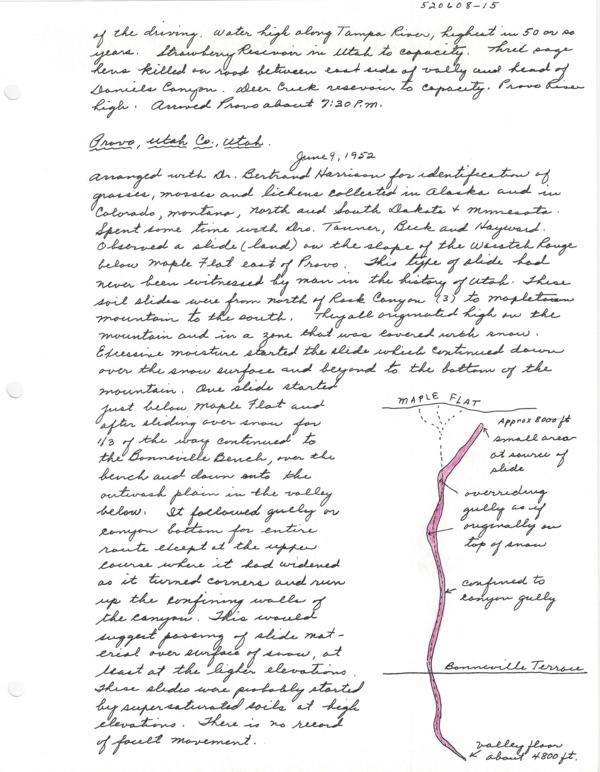 520608-15
of the driving. Water high along Tampa River, highest in 50 or so
years. Strawberry Reservoir in Utah to capacity. Three sage
hens killed on road between east side of vally and head of
Daniels Canyon. Deer Creek resevour to capacity. Provo River
high. Arrived Provo about 7:30 P.m.
Provo, Utah Co., Utah.
June 9, 1952
Arranged with Dr. Bertrand Harrison for identification of
grasses, mosses and lichens collected in Alaska and in
Colorado, Montana, North and South Dakota + Minnesota.
Spent some time with Drs. Tanner, Beck and Hayward.
Observed a slide (land) on the slope of the Wasatch Range
below Maple Flat east of Provo. This type of slide had
never been witnessed by man in the history of Utah. These
soil slides were from north of Rock Canyon (3) to Mapleton
mountain to the south. They all originated high on the
mountain and in a zone that was covered with snow.
Excessive moisture started the slide which continued down
over the snow surface and beyond to the bottom of the
mountain. One slide started
just below Maple Flat and
after sliding over snow for
1/3 of the way continued to
the Bonneville Bench, over the
bench and down onto the
outwash plain in the valley
below. It followed gully or
canyon bottom for entire
route except at the upper
course where it had widened
as it turned corners and run
up the confining walls of
the canyon. This would
suggest passing of slide mat-
erial over surface of snow, at
least at the higher elevations.
These slides were probably started
by supersaturated soils at high
elevations. There is no record
of fault movement.
MAPLE FLAT
Approx 8000 ft
small area
at source of
slide
overriding
gully as if
originally on
top of snow
confined to
canyon gully
Bonneville Terrace
valley floor
about 4800 ft.